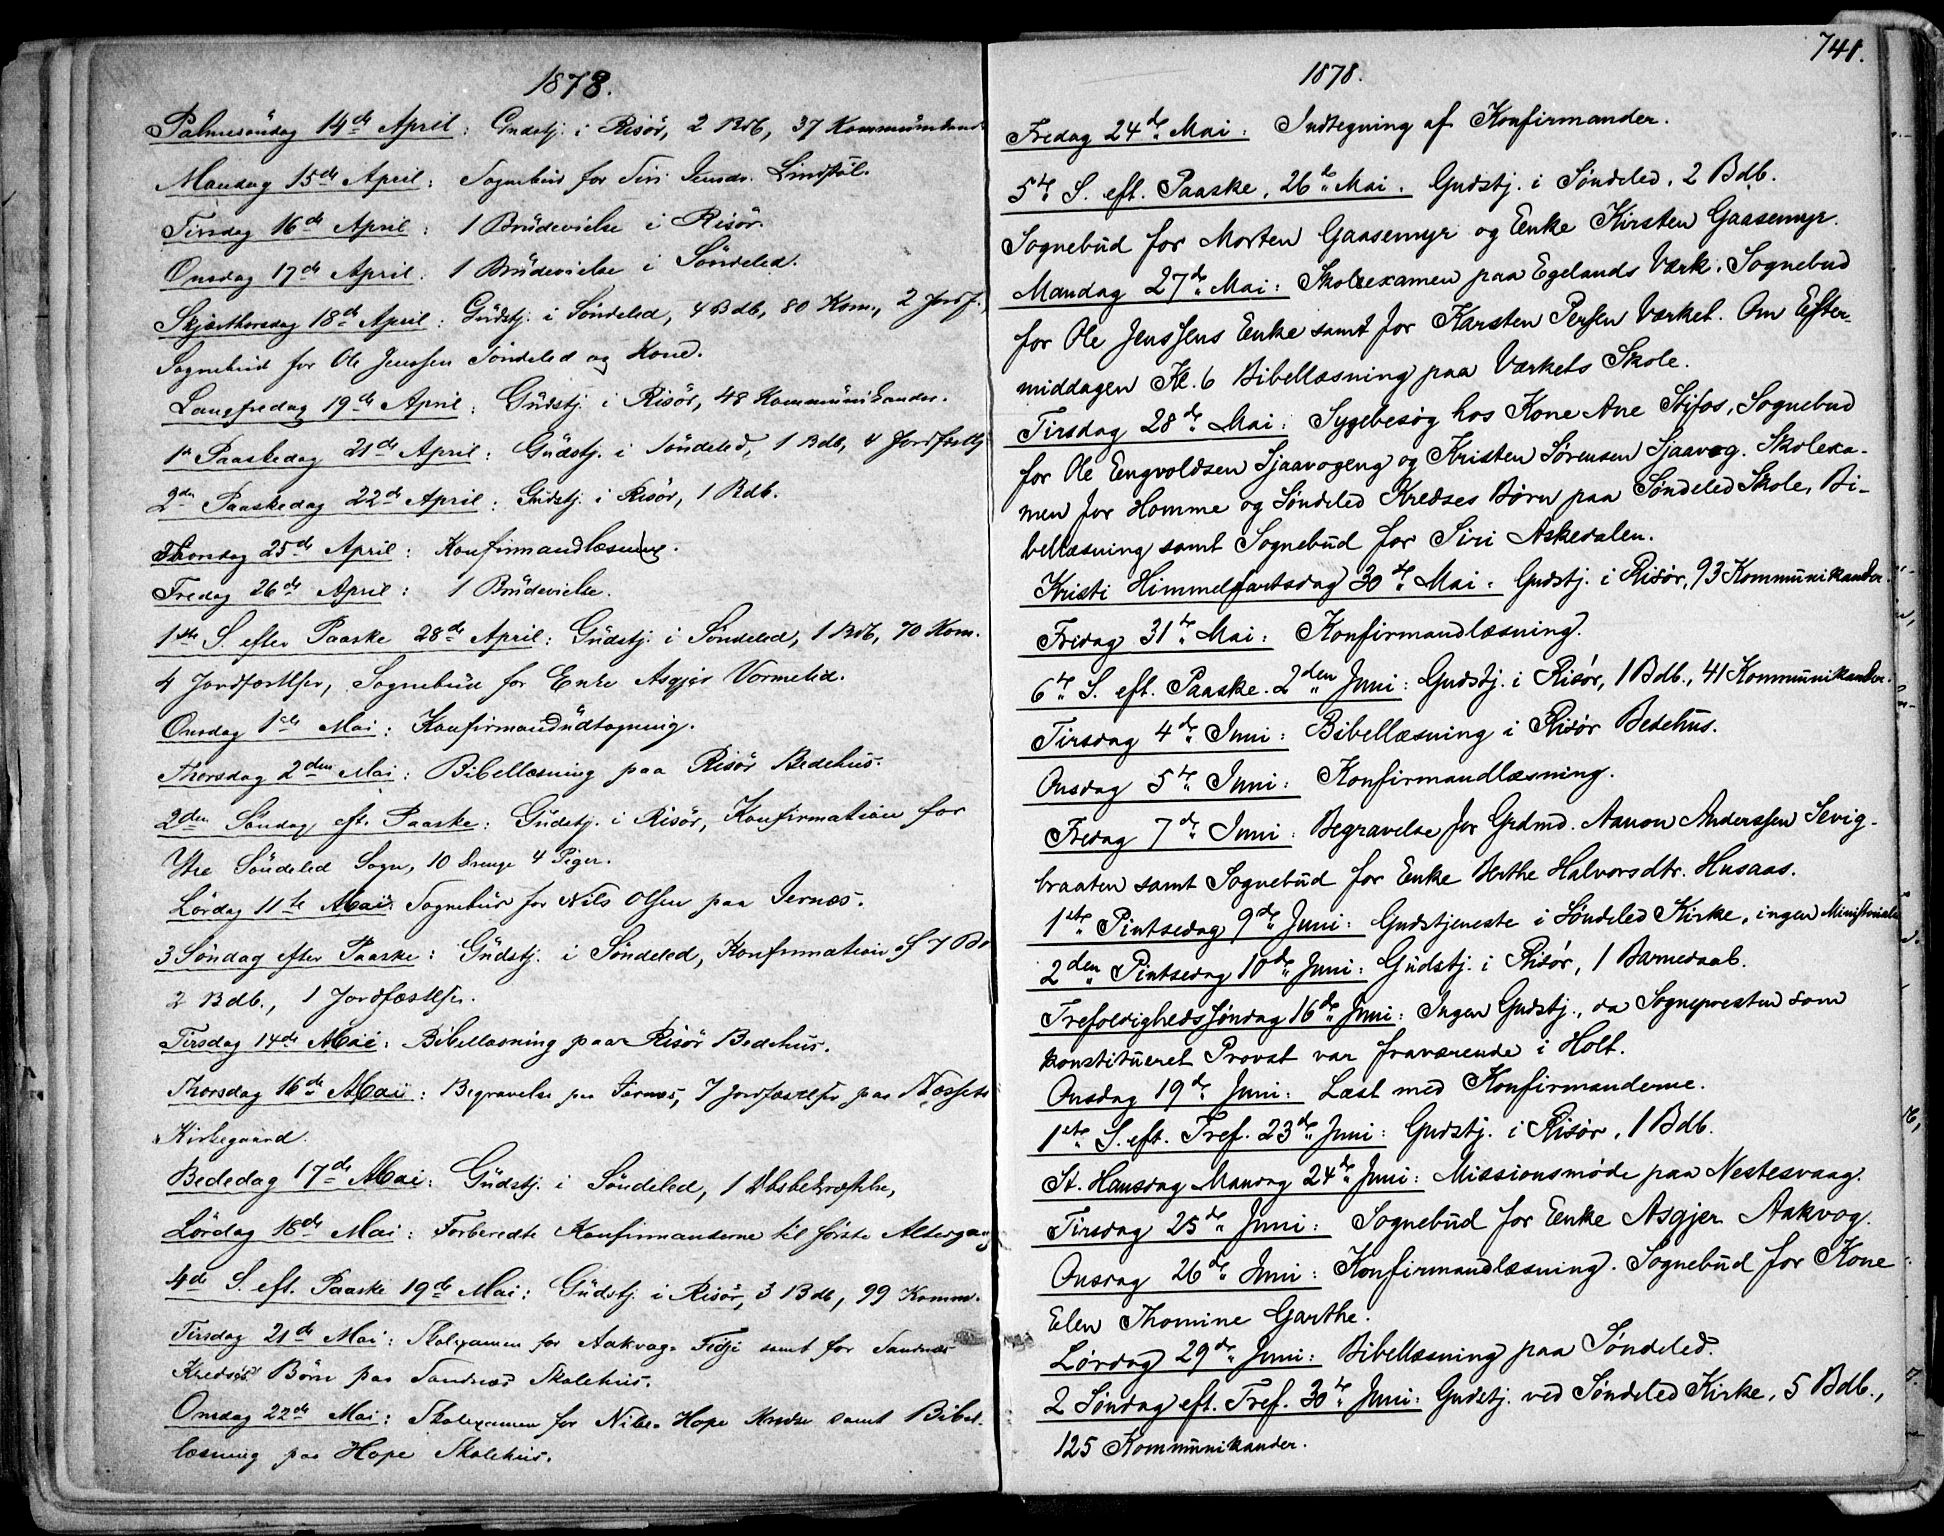 1878.
Palmesöndag 14de April: Gudstj. i Risör, 2 Bdb, 37 Kommunikand
Mandag 15de April: Sognebud for Siri Jensdr. Lindstöl.
Tirsdag 16de April: 1 Brudevielse i Risör.
Onsdag 17de April: 1 Brudevielse i Söndeled.
Skjærthorsdag 18de April: Gudstj. i Söndeled, 4 Bdb, 80 Kom., 2 Jordf.,
Sognebud for Ole Jenssen Söndeled og Kone.
Langfredag 19de April: Gudstj. i Risör, 48 Kommunikander.
1te Paaskedag 21de April: Gudstj. i Söndeled, 1 Bdb, 4 Jordfæstls
2den Paaskedag 22de April: Gudstj. i Risör, 1 Bdb.
Thorsdag 25de April: Konfirmandlæsning.
Fredag 26de April: 1 Brudevielse.
1ste S. efter Paaske 28de April: Gudstj. i Söndeled, 1 Bdb, 70 Kom.
4 Jordfæstlser, Sognebud for Enke Asgjer Vormelid.
Onsdag 1ste Mai: Konfirmandudtagning.
Thorsdag 2den Mai: Bibellæsning paa Risör Bedehus.
2den Söndag eft. Paaske: Gudstj. i Risör, Konfirmation for
Ytre Söndeled Sogn, 10 Drenge 4 Piger.
Lördag 11te Mai: Sognebud for Nils Olsen paa Jernæs.
3 Söndag efter Paaske: Gudstj. i Söndeled, Konfirmation af 7 Bö
2 Bdb., 1 Jordfæstlse.
Tirsdag 14de Mai: Bibellæsning paa Risör Bedehus.
Thorsdag 16de Mai: Begravelse paa Jernæs, 7 Jordfæstlser paa Næssets
Kirkegaard.
Bededag 17de Mai: Gudstj. i Söndeled, 1 Dbsbekræftlse,
Lördag 18de Mai: Forberedte Konfirmanderne til förste Altergang
4de S. eft. Paaske 19de Mai: Gudstj. i Risör, 3 Bdb, 99 Komm.
Tirsdag 21de Mai: Skolexamen for Aakvag-Fidji samt for Sandnæs
Kredses Börn paa Sandnæs Skolehus.
Onsdag 22de Mai: Skolexamen for Hope Kredse samt Bibel-
læsning paa Hope Skolehus.
741.
1878.
Fredag 24de Mai: Indtegning af Konfirmander.
5te S. eft. Paaske, 26de Mai. Gudstj. i Søndeled, 2 Bdb.
Sognebud for Morten Gaasemyr og Enke Kirsten Gaasemyr.
Mandag 27de Mai: Skolexamen paa Egelands Værk. Sognebud
for Ole Jenssens Enke samt for Karsten Persen Værket. Om Efter-
middagen Kl. 6 Bibellæsning paa Værkets Skole.
Tirsdag 28de Mai: Sygebesøg hos Kone Ane Stifos, Sognebud
for Ole Engvoldsen Sjaavogeng og Kristen Sørensen Sjaavog. Skolexa-
men for Homme og Søndeled Kredses Børn paa Søndeled Skole, Bi-
bellæsning samt Sognebud for Siri Askedalen.
Kristi Himmelfartsdag 30te Mai: Gudstj. i Risør, 93 Kommunikander.
Fredag 31te Mai: Konfirmandlæsning.
6te S. eft. Paaske. 2den Juni: Gudstj. i Risør, 1 Bdb., 41 Kommunikander.
Tirsdag 4de Juni: Bibellæsning i Risør Bedehus.
Onsdag 5te Juni: Konfirmandlæsning.
Fredag 7de Juni: Begravelse for Grdmd. Aanon Anderssen Sevig-
braaten samt Sognebud for Enke Berthe Halvorsdtr. Husaas.
1ste Pintsedag 9de Juni: Gudstjeneste i Søndeled Kirke, ingen Ministerialia
2den Pintsedag 10de Juni: Gudstj. i Risør, 1 Barnedaab.
Trefoldigheds Søndag 16de Juni: Ingen Gudstj., da Sognepresten som
konstitueret Provst var fraværende i Holt.
Onsdag 19de Juni: Læst med Konfirmanderne.
1ste S. eft. Tref. 23de Juni: Gudstj. i Risør, 1 Bdb.
St. Hansdag Mandag 24de Juni: Missionsmøde paa Nestesvaag.
Tirsdag 25de Juni: Sognebud for Enke Asgjer Aakvog.
Onsdag 26de Juni: Konfirmandlæsning. Sognebud for Kone
Elen Thomine Garthe.
Lørdag 29de Juni: Bibellæsning paa Søndeled.
2 Søndag eft. Tref. 30te Juni: Gudstj. ved Søndeled Kirke, 5 Bdb.,
125 Kommunikander.